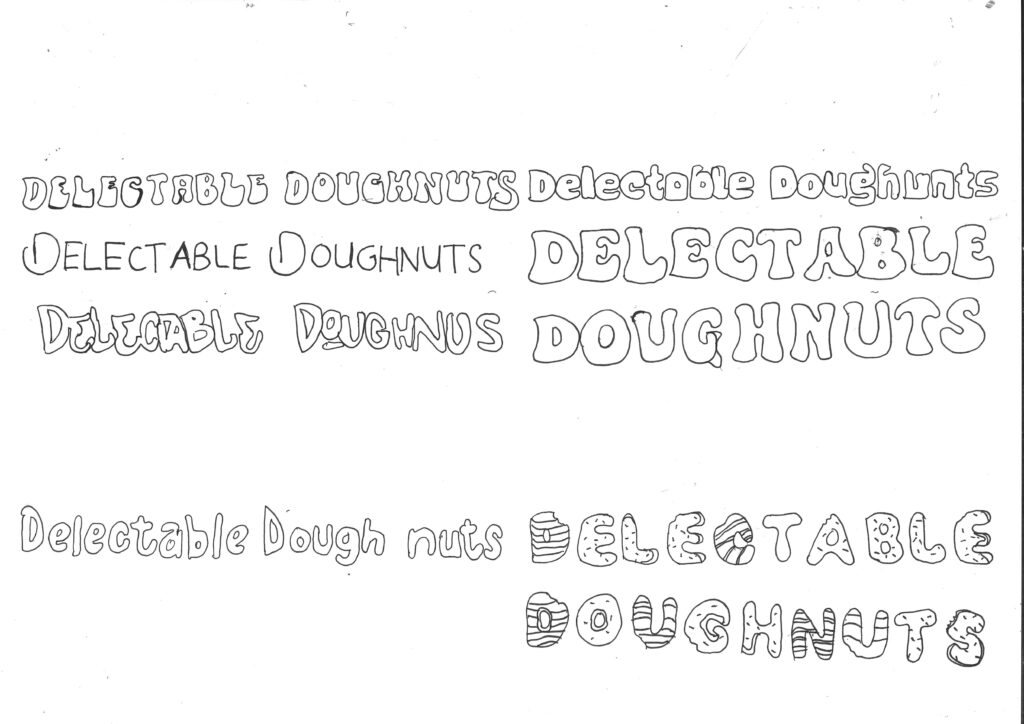 DELECTABLE DOUGHNUTS
DELECTABLE DOUGHNUTS
DELECTABLE DOUGHNUS
Delectable Doughunts
DELECTABLE
DOUGHNUTS
Delectable Dough nuts
DELECTABLE
DOUGHNUTS